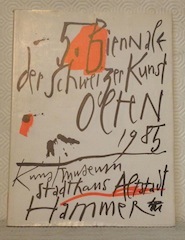 5. Biennale
der schweizer Kunst
OLten
1985
Kunstmuseum
stadthaus Altstadt
Hammer